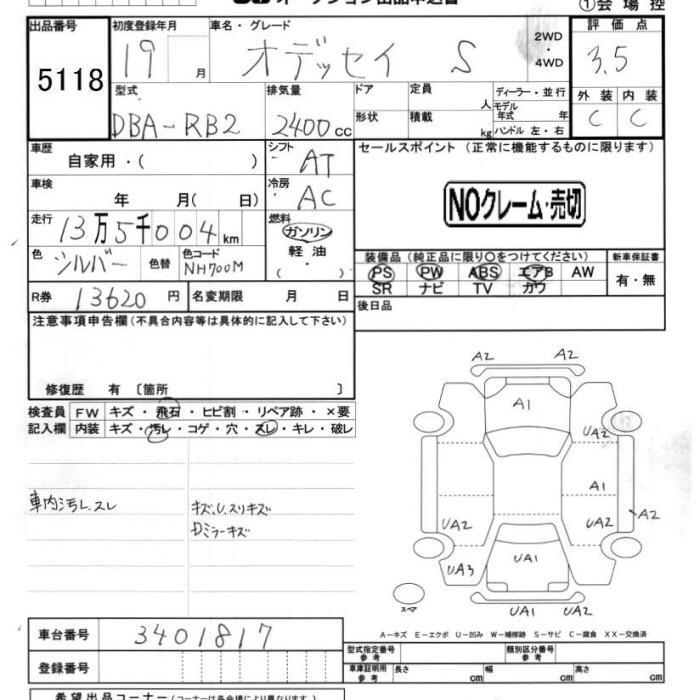 ①会場控
出品番号 初度登録年月 車名・グレード 評価点
5118 19 月 オデッセイ S 2WD・4WD 3.5
型式 排気量 ドア 定員 人 ディーラー・並行 外装 内装
DBA-RB2 2400cc 形状 積載 kg モデル年式 年 ハンドル 左・右 C C
車歴 自家用・( ) シフト AT セールスポイント (正常に機能するものに限ります)
車検 年 月( 日) 冷房 AC
NOクレーム・売切
走行 13万5千004km 燃料 ガソリン
軽油
・( )
色 シルバー 色替 色コード NH700M
装備品 (純正品に限り○をつけてください) 新車保証書
PS PW ABS エアB AW 有・無
SR ナビ TV カワ
R券 13620円 名変期限 月 日
後日品
注意事項申告欄(不具合内容等は具体的に記入して下さい)
修復歴 有 〔箇所 〕
検査員 FW キズ・飛石・ヒビ割・リペア跡・×要
記入欄 内装 キズ・汚レ・コゲ・穴・スレ・キレ・破レ
車内汚レ.スレ
キズ,U.スリキズ
Dミラーキズ
A2 A2
A1
UA2
A1
A2
UA2 UA2
UA3 UA1
スペア
UA1 UA2
A-キズ E-エクボ U-凹み W-補修跡 S-サビ C-腐食 XX-交換済
車台番号 3401817
登録番号
型式指定番号 参考 類別区分番号 参考
車庫証明用 参考 長さ cm 幅 cm 高さ cm
希望出品コーナー(コーナーは各会場により異なります。)